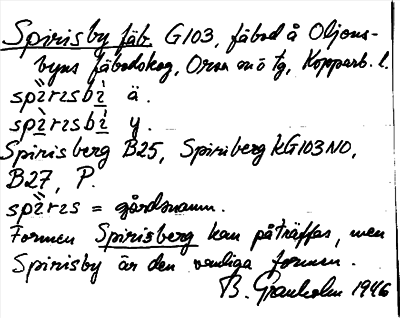 Spirisby fäb. G103, fäbod å Oljons-
byns fäbodskog, Orsa snö tg, Kopparb. l.
spìrɪsbì ä.
spìrɪsbì y.
Spirisberg B25, Spiriberg kG103NO,
B27, P.
spìrɪs = gårdsnamn.
Formen Spirisberg kan påträffas, men
Spirisby är den vanliga formen.
B. Granholm 1946